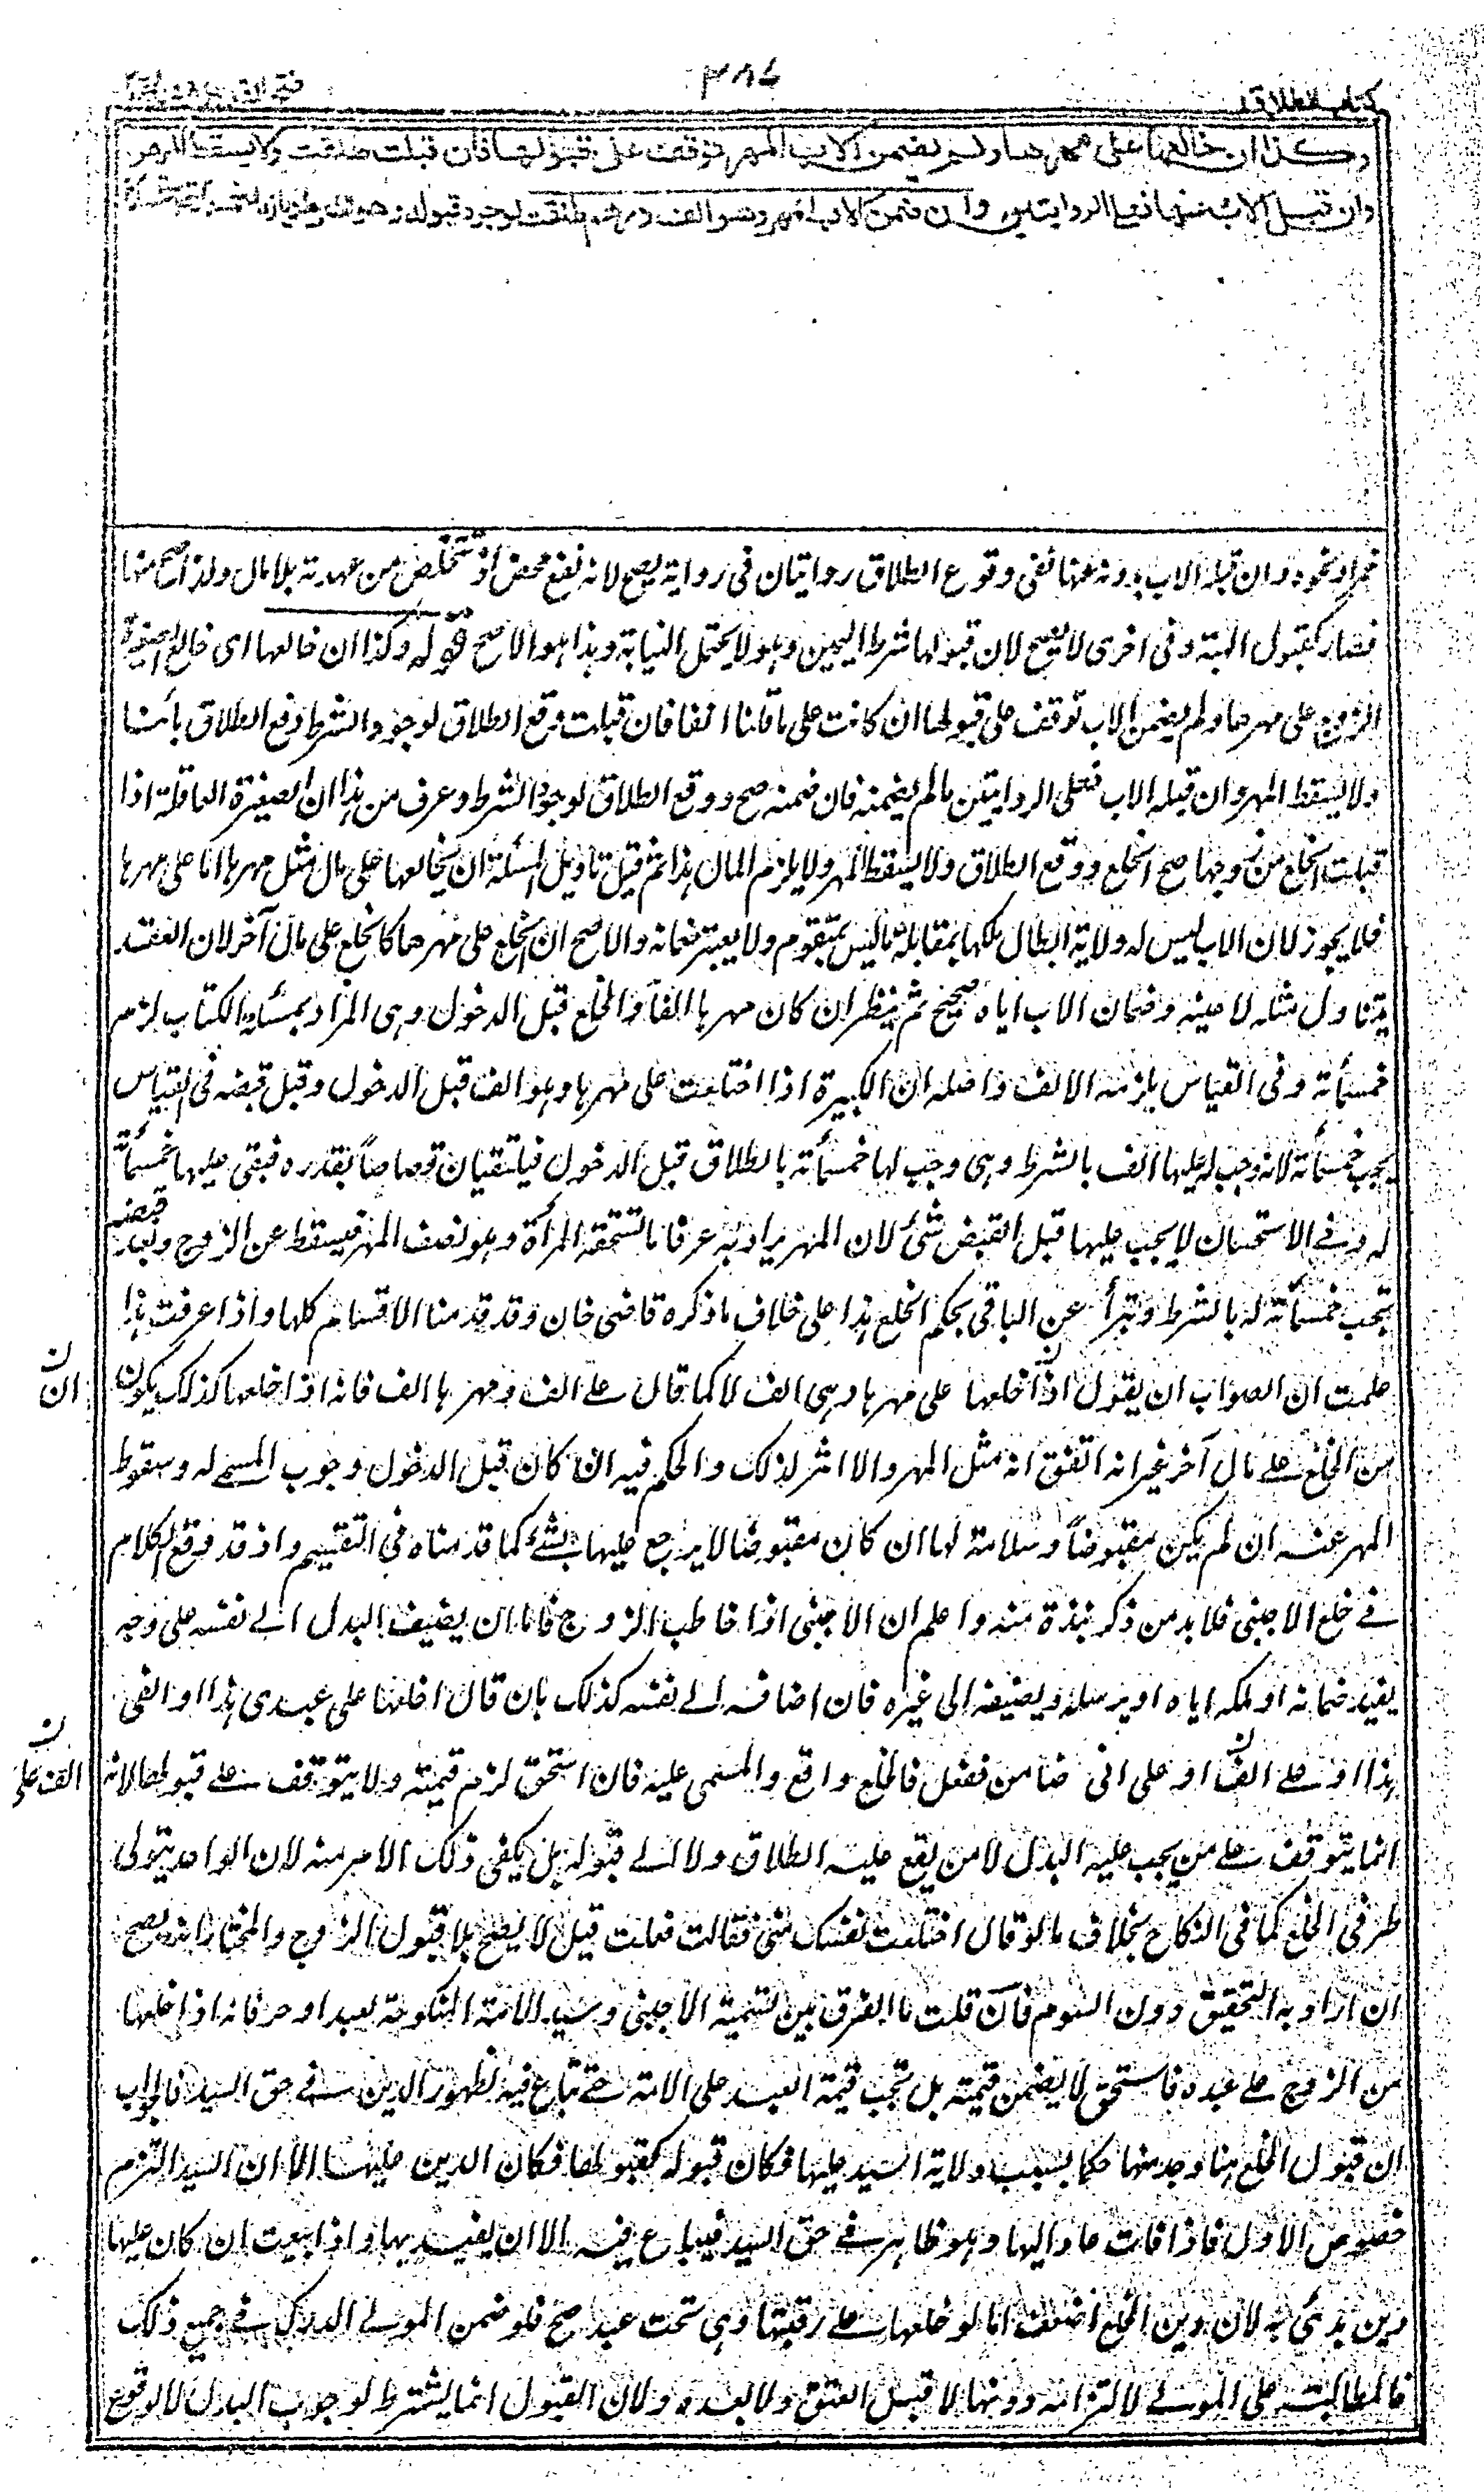 كتاب الطلاق
٣٨٤
وكذا ان خالعها على مهرها ولم يضمن الاب المهر توقف على قبولها فان قبلت طلقت ولا يسقط المهر
وان قبل الاب عنها فعلى الروايتين وان ضمن الاب المهر وهو الف درهم طلقت لوجود قبوله وهو الشرط
خمرا ونحوه وان قبله الاب بدونه عنها ففى وقوع الطلاق روايتان فى رواية يصح لانه نفع محض اذ تتخلص من عهدته بلا مال ولذا صح منها
فصار كقبول الهبة وفى اخرى لا يصح لان قبولها شرط اليمين وهو لا يحتمل النيابة وهذا هو الاصح قوله وكذا ان خالعها اى خالع الصغيرة
الزوج على مهرها ولم يضمن الاب توقف على قبولها ان كانت على ما قلنا انفا فان قبلت وقع الطلاق لوجود الشرط وقع الطلاق بائنا
ولا يسقط المهر وان قبله الاب فعلى الروايتين ما لم يضمنه فان ضمنه صح ووقع الطلاق لوجود الشرط وعرف من هذا ان الصغيرة العاقلة اذا
قبلت الخلع من زوجها صح الخلع ووقع الطلاق ولا يسقط المهر ولا يلزم المال هذا ثم قيل تاويل المسألة ان يخالعها على مال مثل مهرها اما على مهرها
فلا يجوز لان الاب ليس له ولاية ابطال ملكها بمقابلة ما ليس بمتقوم ولا يعتبر ضمانه والاصح ان الخلع على مهرها كالخلع على مال آخر لان العقد
يتناول مثله لا عينه وضمان الاب اياه صحيح ثم ينظر ان كان مهرها الفا والخلع قبل الدخول وهى المراد بمسألة الكتاب لزمه
خمسمأتة وفى القياس يلزمه الالف واصله ان الكبيرة اذا اختلعت على مهرها وهو الف قبل الدخول وقبل قبضه فى القياس
يجب خمسمأتة لانه وجب له عليها الف بالشرط وهى وجب لها خمسمأتة بالطلاق قبل الدخول فيلتقيان قصاصاً بقدره فبقى عليها خمسمأتة
له وفى الاستحسان لا يجب عليها قبل القبض شئ لان المهر يراد به عرفا ما تستحقه المرأة وهو نصف المهر فيسقط عن الزوج وبعد قبضه
تجب خمسمأتة له بالشرط وتبرأ عن الباقى بحكم الخلع هذا على خلاف ما ذكره قاضى خان وقد قدمنا الاقسام كلها واذا عرفت هذا
علمت ان الصواب ان يقول اذا خلعها على مهرها وهى الف لا كما قال على الف ومهرها الف فانه اذا خلعها كذلك يكون
ان
من الخلع على مال آخر غير انه اتفق انه مثل المهر ولا اثر لذلك والحكم فيه ان كان قبل الدخول وجوب المسمى له وسقوط
المهر عنه ان لم يكن مقبوضاً وسلامة لها ان كان مقبوضا لا يرجع عليها بشئ كما قدمناه فى التقسيم واذ قد وقع الكلام
فى خلع الاجنبى فلا بد من ذكر نبذة منه واعلم ان الاجنبى اذا خاطب الزوج فاما ان يضيف البدل الى نفسه على وجه
يفيد ضمانه او ملكه اياه او يرسله ويضيفه الى غيره فان اضافه الى نفسه كذلك بان قال اخلعها على عبدى هذا او الفى
هذا او على الف او على انى ضامن ففعل فالخلع واقع والمسمى عليه فان استحق لزم قيمته ولا يتوقف على قبولها لانه
الف على
انما يتوقف على من يجب عليه البدل لا من يقع عليه الطلاق ولا الى قبوله بل يكفى ذلك الامر منه لان الواحد يتولى
طرفى الخلع كما فى النكاح بخلاف ما لو قال اختلعت نفسك منى فقالت فعلت قيل لا يصح بلا قبول الزوج والمختار انه يصح
ان اراد به التحقيق دون السوم فان قلت ما الفرق بين تسمية الاجنبى وسيد الامة المنكوحة لعبد او حر فانه اذا خلعها
من الزوج على عبده فاستحق لا يضمن قيمته بل تجب قيمة العبد على الامة حتى تباع فيه لظهور الدين فى حق السيد فالجواب
ان قبول الخلع هنا وجد منها حكما بسبب ولاية السيد عليها فكان قبوله كقبولها فكان الدين عليها الا ان السيد التزم
خصوص الاول فاذا فات عاد اليها وهو ظاهر فى حق السيد فيباع فيه الا ان يفيديها واذا بيعت ان كان عليها
دين بدئ به لان دين الخلع اضعف اما لو خلعها على رقبتها وهى تحت عبد صح فلو ضمن المولى الدرك فى جميع ذلك
فالمطالبة على المولى لالتزامه دونها لا قبل العتق ولا بعده ولان القبول انما يشترط لوجوب البدل لا لوقوع